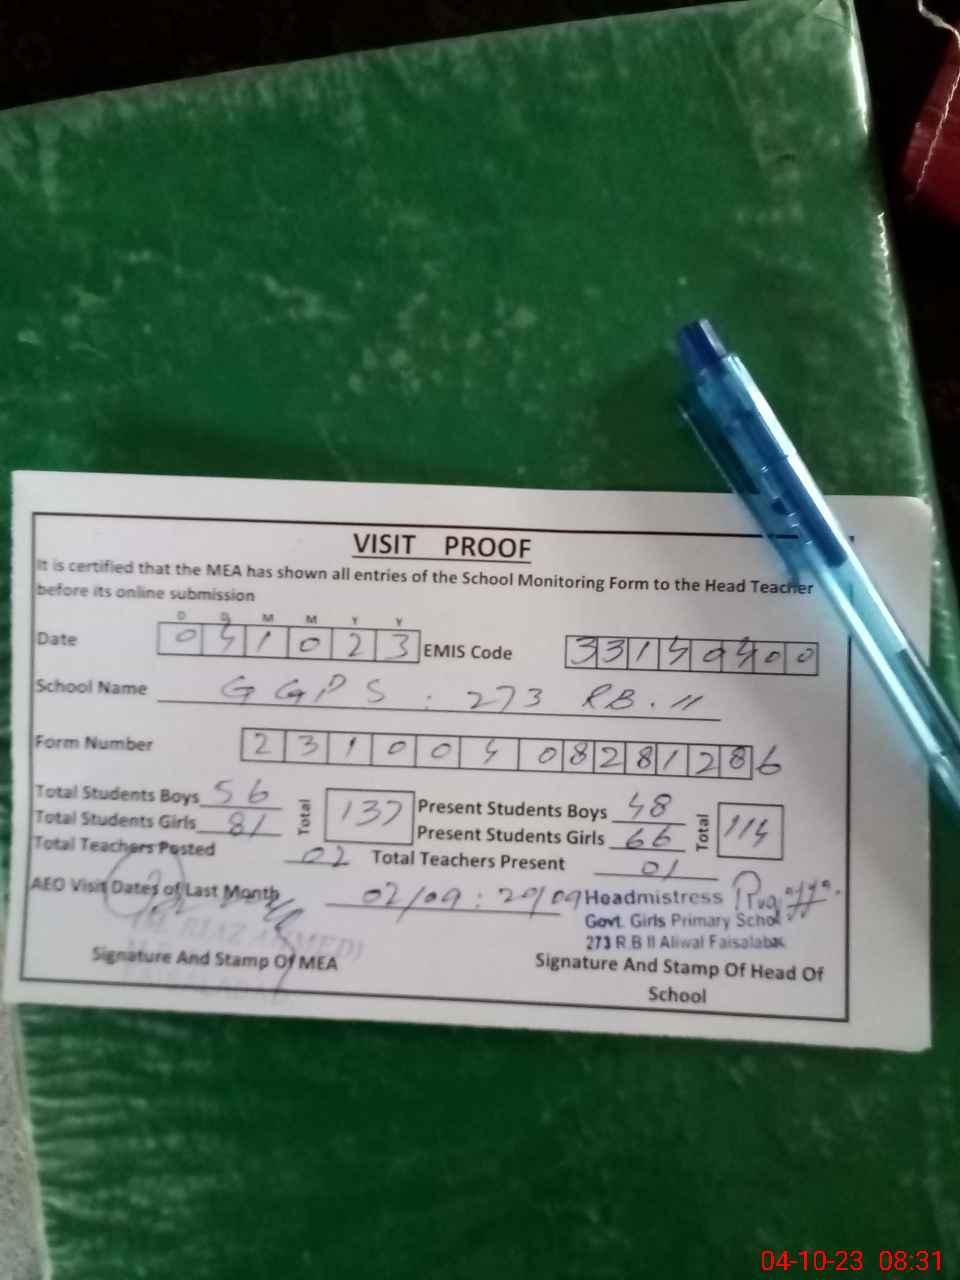 VISIT PROOF
It is certified that the MEA has shown all entries of the School Monitoring Form to the Head Teacher
before its online submission
D D M M Y Y
Date 041023 EMIS Code 33140400
School Name GGPS : 273 RB. II
Form Number 23100408281286
Total Students Boys 56 Total 137 Present Students Boys 48 Total 114
Total Students Girls 81 Present Students Girls 66
Total Teachers Posted 02 Total Teachers Present 01
AEO Visit Dates of Last Month 02/09 : 29/09 Headmistress
Govt. Girls Primary School
(M. RIAZ AHMED) 273 R.B II Aliwal Faisalabad
Signature And Stamp Of MEA Signature And Stamp Of Head Of
School
04-10-23 08:31